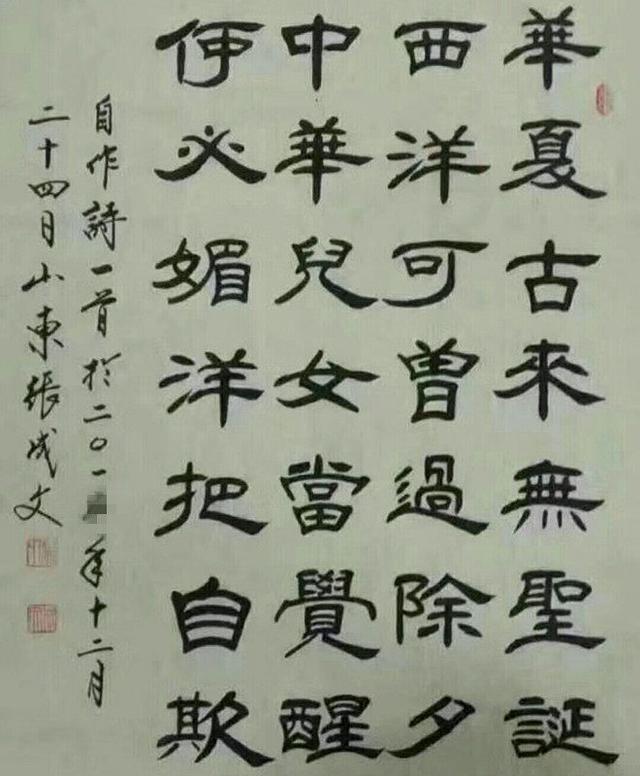 華夏古來無聖誕
西洋可曾過除夕
中華兒女當覺醒
何必媚洋把自欺
自作詩一首於二〇一年十二月
二十四日山東張成文